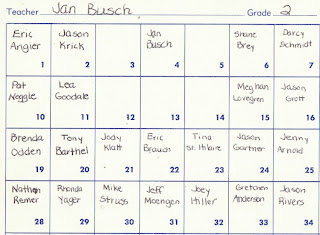 Teacher Jan Busch Grade 2
Eric Angier
Jason Krick
Jan Busch
Shane Brey
Darcy Schmidt
1 2 3 4 5 6 7
Pat Noggle
Lea Goodale
Meghan Lovegren
Jason Grott
10 11 12 13 14 15 16
Brenda Odden
Tony Barthel
Jody Klatt
Eric Brauch
Tina St. Hilaire
Jason Gartner
Jenny Arnold
19 20 21 22 23 24 25
Nathan Remer
Rhonda Yager
Mike Struss
Jeff Moengen
Joey Hiller
Gretchen Anderson
Jason Rivers
28 29 30 31 32 33 34